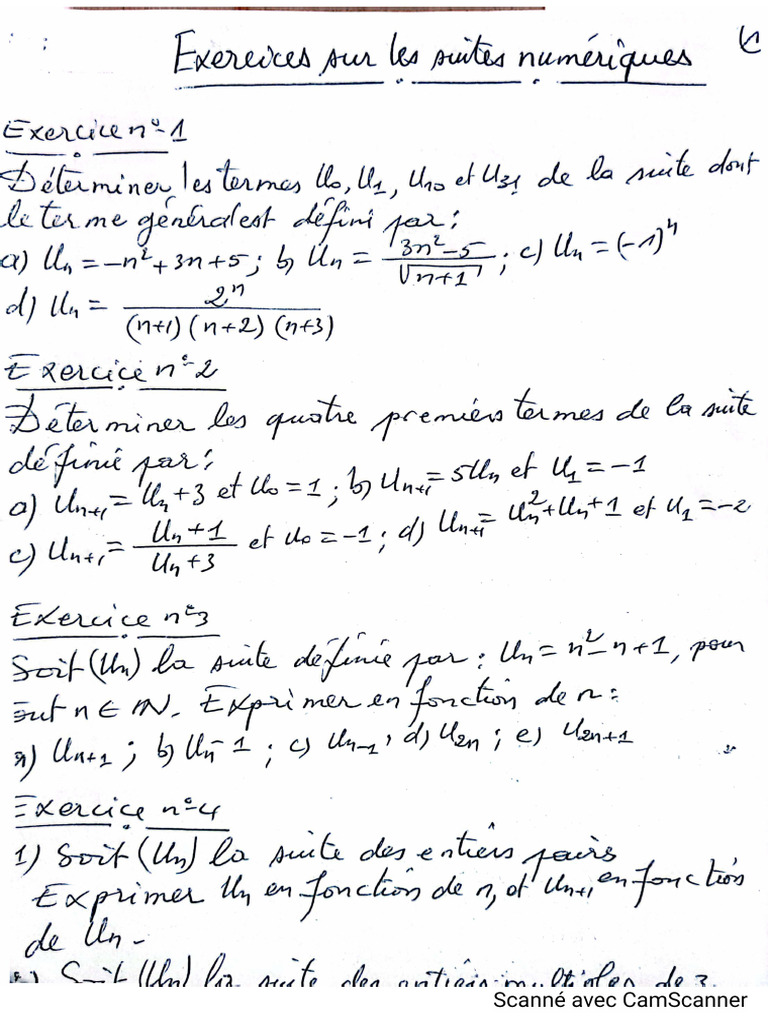 Exercices sur les suites numériques
Exercice n°1
Déterminer les termes U₀, U₁, U₁₀ et U₃₁ de la suite dont
le terme général est défini par :
a) Uₙ = -n² + 3n + 5 ; b) Uₙ = (3n² - 5)/√(n+1) ; c) Uₙ = (-1)ⁿ
d) Uₙ = 2ⁿ/((n+1)(n+2)(n+3))
Exercice n°2
Déterminer les quatre premiers termes de la suite
définie par :
a) Uₙ₊₁ = Uₙ + 3 et U₀ = 1 ; b) Uₙ₊₁ = 5Uₙ et U₁ = -1
c) Uₙ₊₁ = (Uₙ + 1)/(Uₙ + 3) et U₀ = -1 ; d) Uₙ₊₁ = Uₙ² + Uₙ + 1 et U₁ = -2
Exercice n°3
Soit (Uₙ) la suite définie par : Uₙ = n² - n + 1, pour
tout n ∈ IN. Exprimer en fonction de n :
a) Uₙ₊₁ ; b) Uₙ - 1 ; c) Uₙ₋₁, d) U₂ₙ ; e) U₂ₙ₊₁
Exercice n°4
1) Soit (Uₙ) la suite des entiers pairs
Exprimer Uₙ en fonction de n, et Uₙ₊₁ en fonction
de Uₙ -
Soit (Uₙ) la suite des entiers multiples de 3
Scanné avec CamScanner